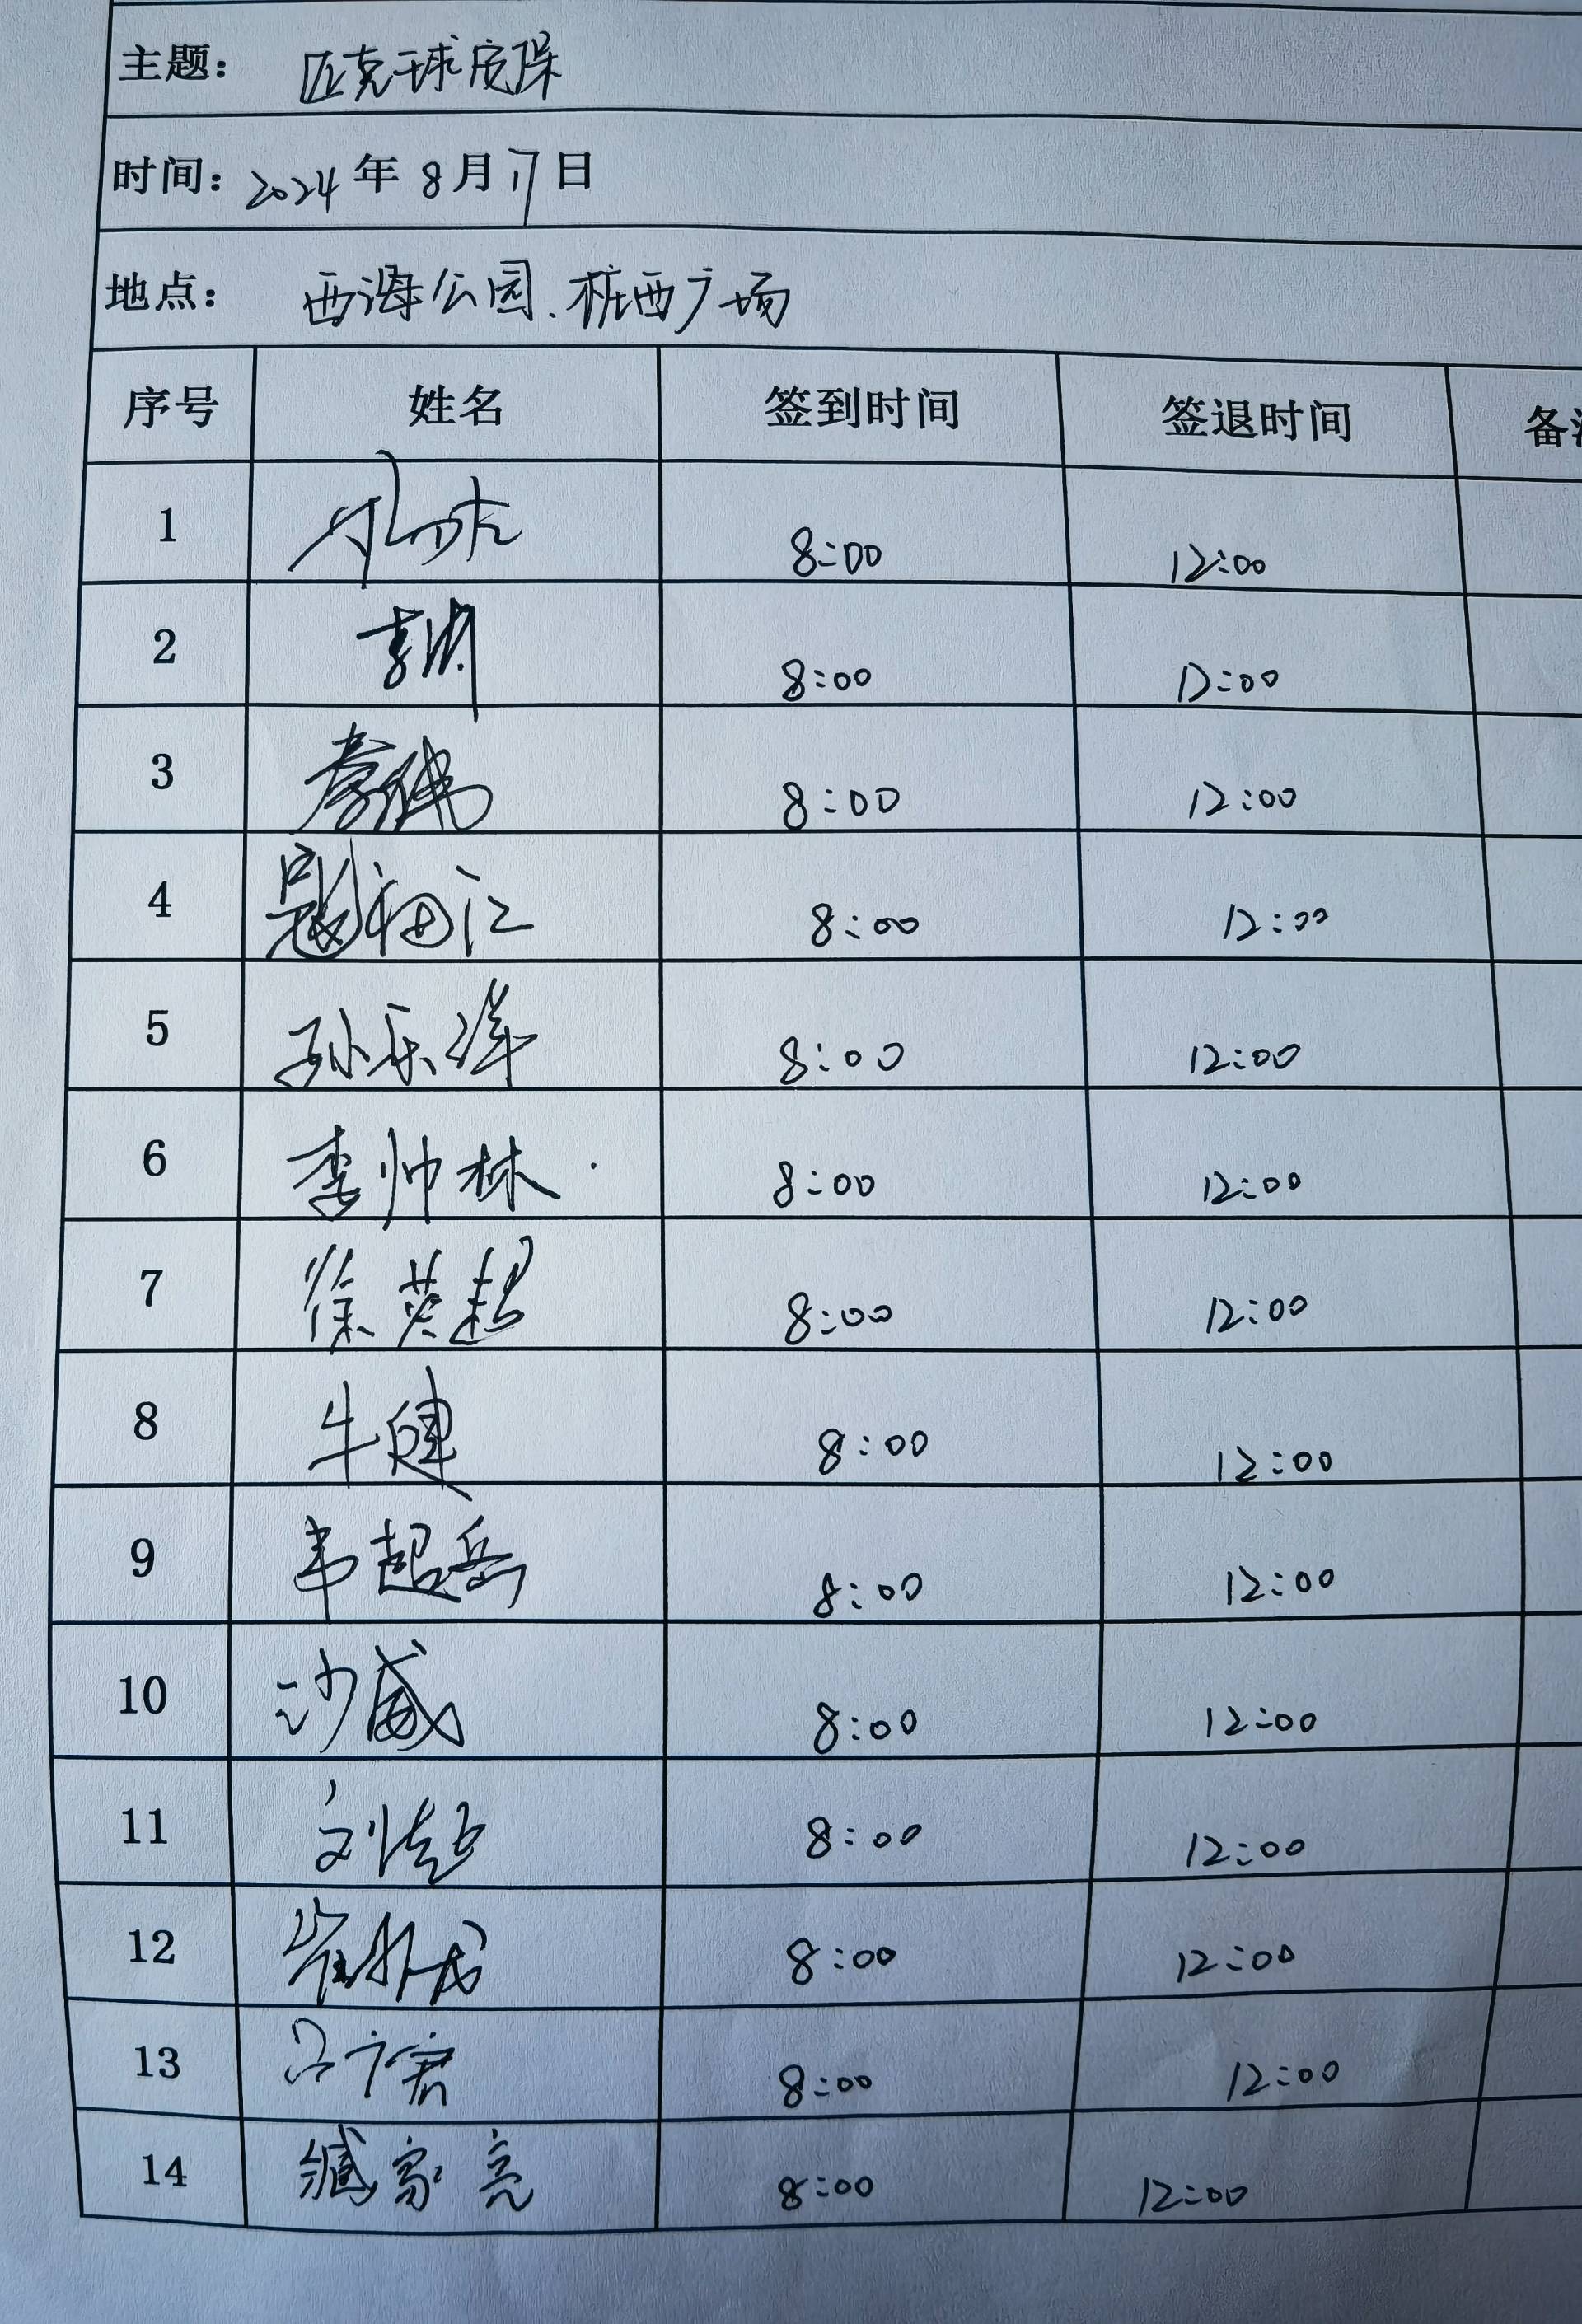 主题： 匹克球安保
时间：2024年8月17日
地点： 西海公园.桩西广场
序号 姓名 签到时间 签退时间 备
1 8:00 12:00
2 8:00 12:00
3 李伟 8:00 12:00
4 寇福江 8:00 12:00
5 孙乐洋 8:00 12:00
6 李帅林 8:00 12:00
7 徐英超 8:00 12:00
8 牛健 8:00 12:00
9 韦超岳 8:00 12:00
10 沙威 8:00 12:00
11 刘超 8:00 12:00
12 崔 8:00 12:00
13 吕广宏 8:00 12:00
14 臧家亮 8:00 12:00